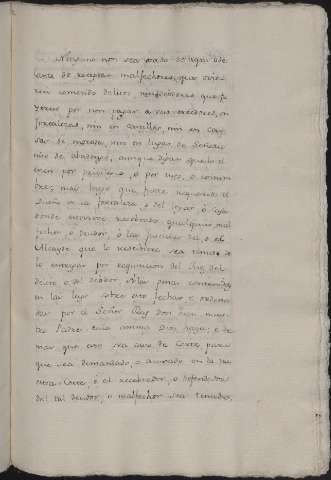 Ninguno non sea osado de aqui ade-
lante de receptar malfechores, que ovie-
ren cometido delitos, nin deudores que fu-
yeren por non pagar a sus acredores, en
fortalezas, nin en castillos, nin en casas
de morada, nin en lugar de Señorio
nin de abadengo, aunque digan que lo ti-
enen por privilegio, o por uso, o costum-
bre; mas luego que fuere requerido el
Dueño de la fortaleza, o del lugar, o casa
donde estoviere recebtado qualquier mal-
fechor o deudor, o las justicias del, o el
Alcayde que lo recebiere sea tenudo de
lo entregar por requisicion del Juez del
delito, o del deudor so las penas contenidas
en las leyes sobre esto fechas, e ordena-
das por el Señor Rey Don Juan nues-
tro Padre, cuia anima Dios haya; e de-
mas que esto sea caso de Corte para
que sea demandado, o acusado en la nu-
estra Corte, e el recebtador, o defendedor
del tal deudor, o malfechor sea tenudo,